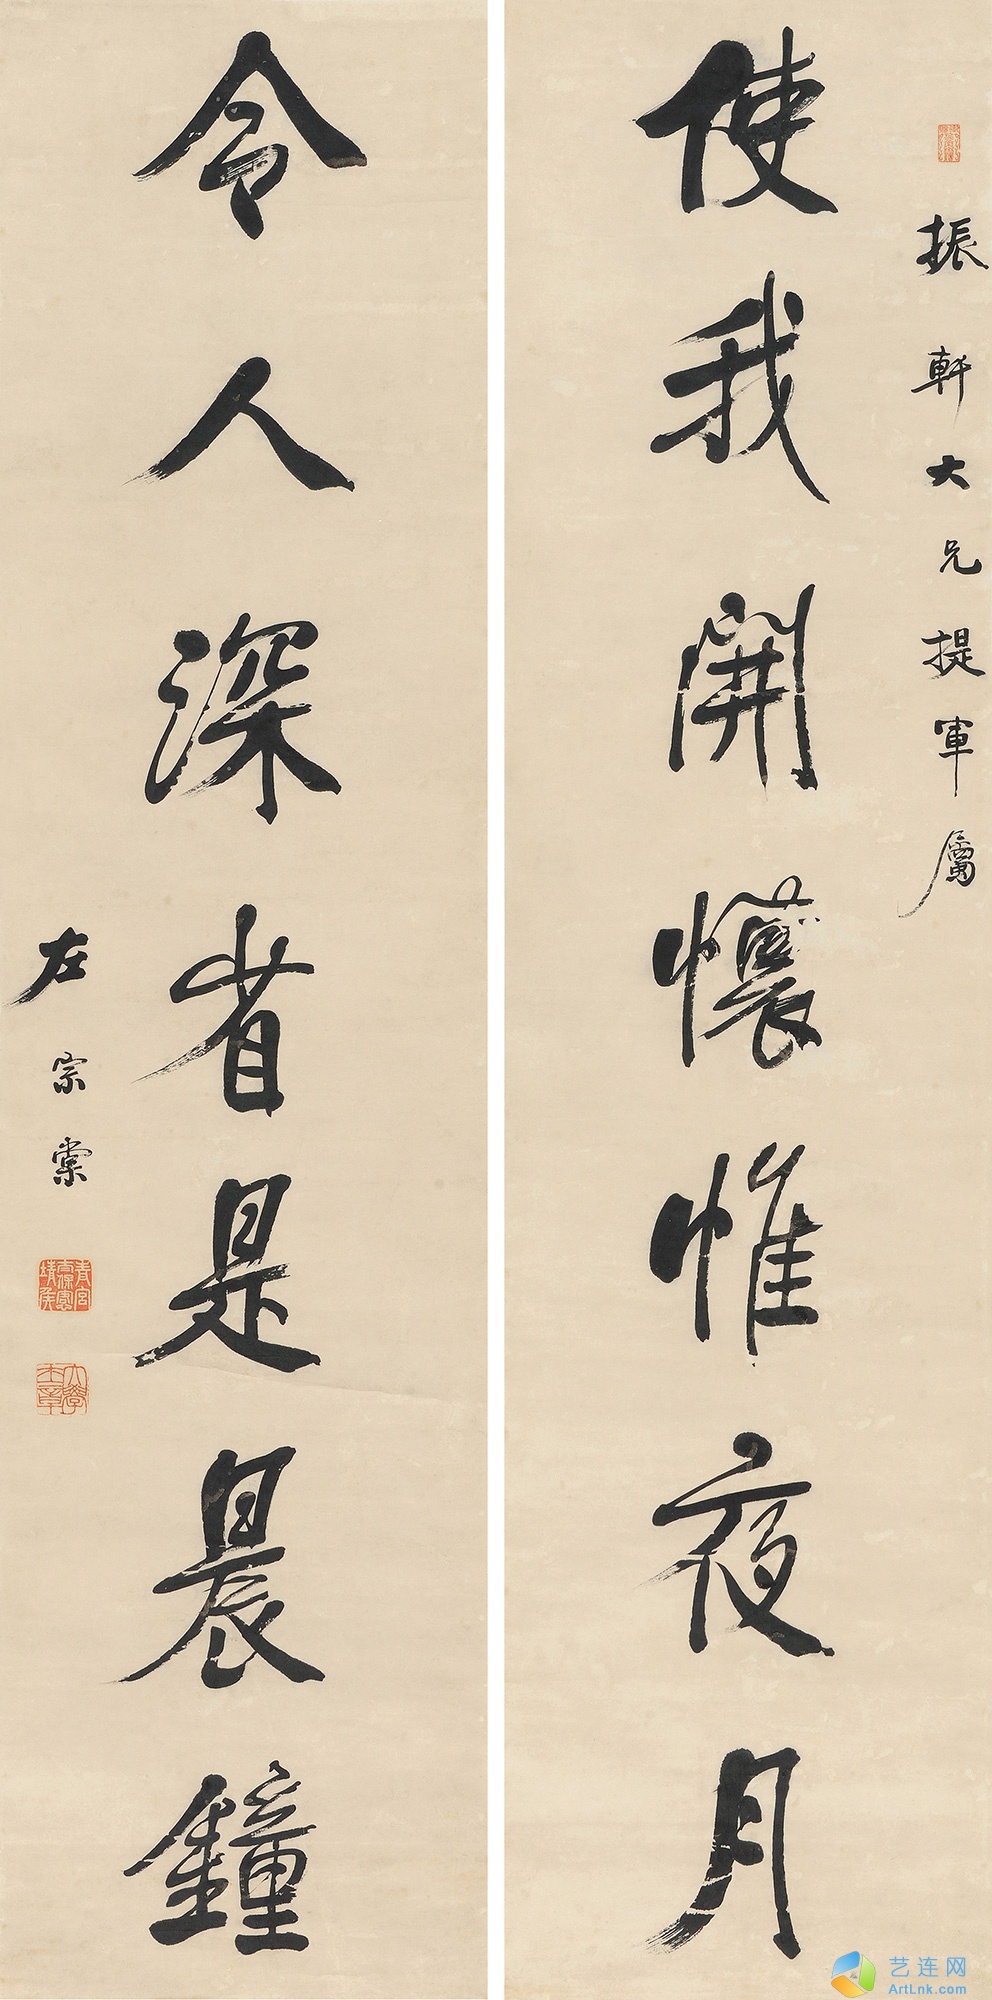 振軒大兄提軍屬
使我開懷惟夜月
令人深省是晨鐘
左宗棠
青宮太保恪靖侯
大學士章
艺连网
ArtLnk.com